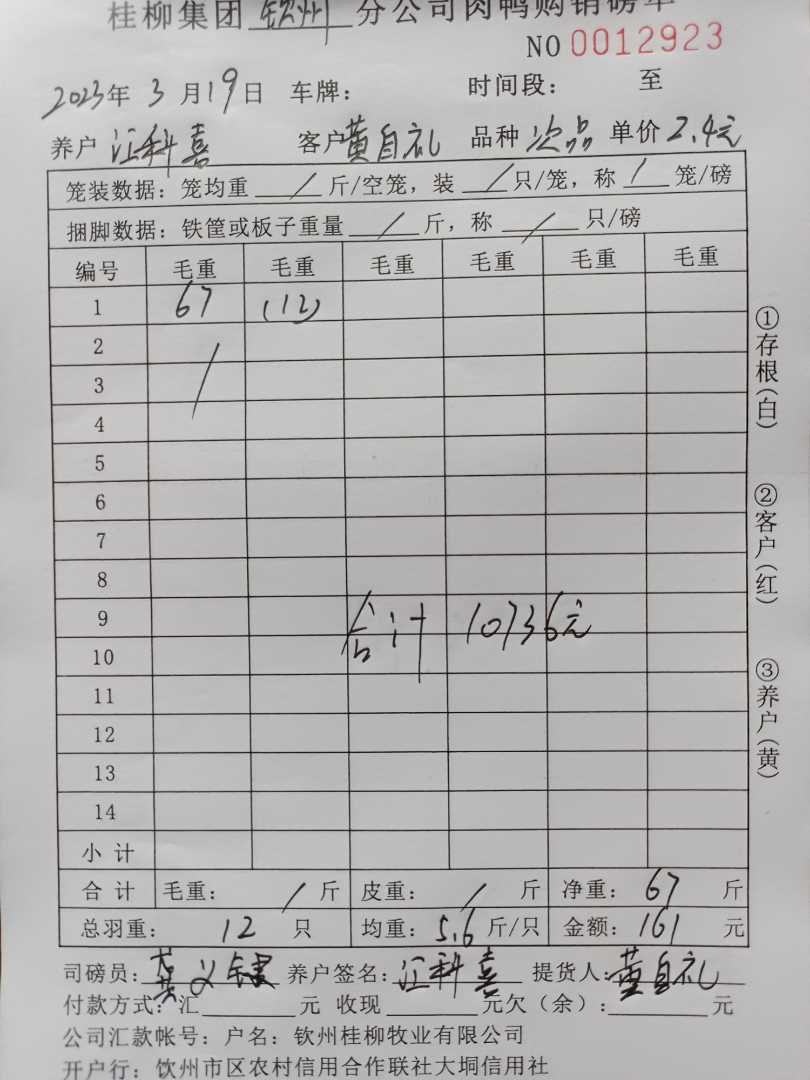 桂柳集团 钦州 分公司肉鸭购销磅单
NO 0012923
2023年 3 月19日 车牌： 时间段： 至
养户 江科喜 客户黄自礼 品种 次品 单价 2.4元
笼装数据：笼均重 / 斤/空笼，装 / 只/笼，称 / 笼/磅
捆脚数据：铁筐或板子重量 / 斤，称 / 只/磅
编号 毛重 毛重 毛重 毛重 毛重 毛重
1 67 (12)
2 /
3
4
5
6
7
8
9
合计 10736元
10
11
12
13
14
小 计
合 计 毛重： / 斤 皮重： / 斤 净重： 67 斤
总羽重： 12 只 均重： 5.6 斤/只 金额： 161 元
司磅员： 黄义 养户签名： 江科喜 提货人： 黄自礼
付款方式：汇 元 收现 元欠（余）： 元
公司汇款帐号：户名：钦州桂柳牧业有限公司
开户行：饮州市区农村信用合作联社大垌信用社
①存根(白)
②客户(红)
③养户(黄)